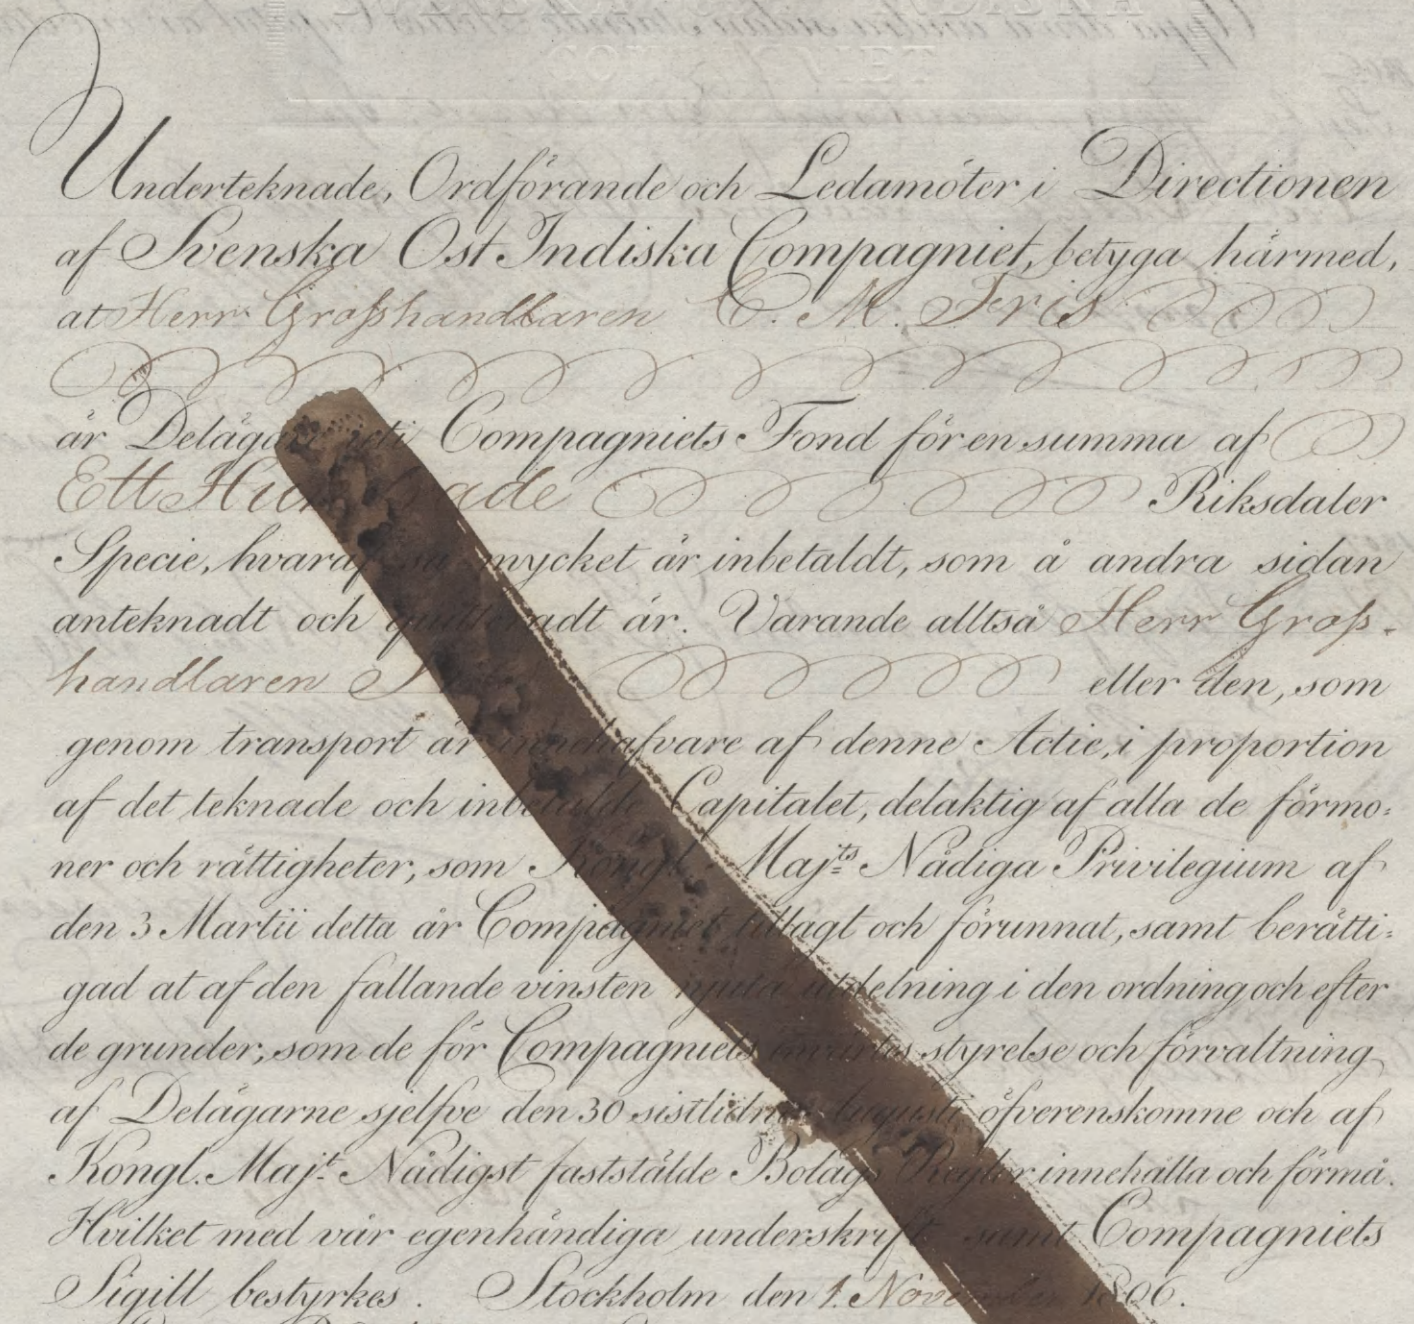 Underteknade, Ordförande och Ledamöter i Directionen
af Svenska Ost Indiska Compagniet, betyga härmed,
at Herr Grosshandlaren C. M. Fris
är Delägare uti Compagniets Fond för en summa af
Ett Hundrade Riksdaler
Specie, hvaraf så mycket är inbetaldt, som å andra sidan
anteknadt och quitteradt är. Varande alltså Herr Gross-
handlaren Fris eller den, som
genom transport är innehafvare af denne Actie, i proportion
af det teknade och inbetalde Capitalet, delaktig af alla de förmo-
ner och rättigheter, som Kongl. Majts Nådiga Privilegium af
den 3 Martii detta år Compagniet tillagt och förunnat, samt berätti-
gad at af den fallande vinsten njuta utdelning i den ordning och efter
de grunder, som de för Compagniets styrelse och förvaltning
af Delägarne sjelfve den 30 sistlidne Augusti öfverenskomne och af
Kongl. Majt Nådigst faststälde Bolags Regler innehålla och förmå.
Hvilket med vår egenhändiga underskrift samt Compagniets
Sigill bestyrkes. Stockholm den 1. November 1806.